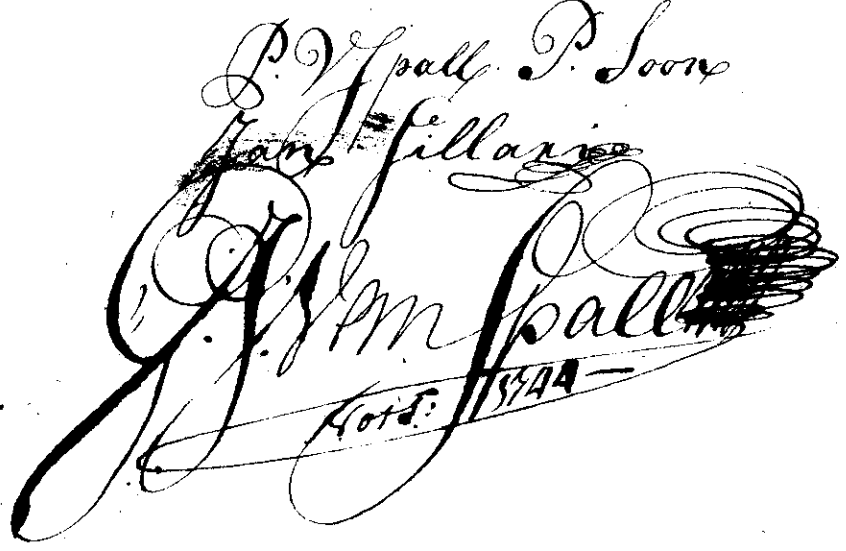 P. V Spall. P. Soon
Jan Sillanie
G. J. V Spall
Nots: 1744 —